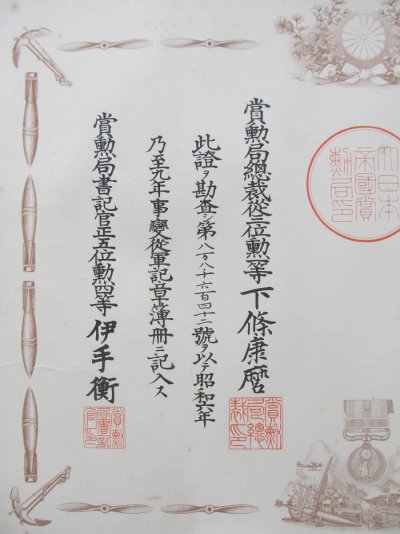 大日本
帝國賞
勲局印
賞勲局總裁從三位勲一等 下條康麿
賞勲
局總
裁印
此證ヲ勘査シ第八万八千六百四十二號ヲ以テ昭和六年
乃至九年事變從軍記章簿冊ニ記入ス
賞勲局書記官正五位勲四等 伊手衡
賞勲
局書記
官印